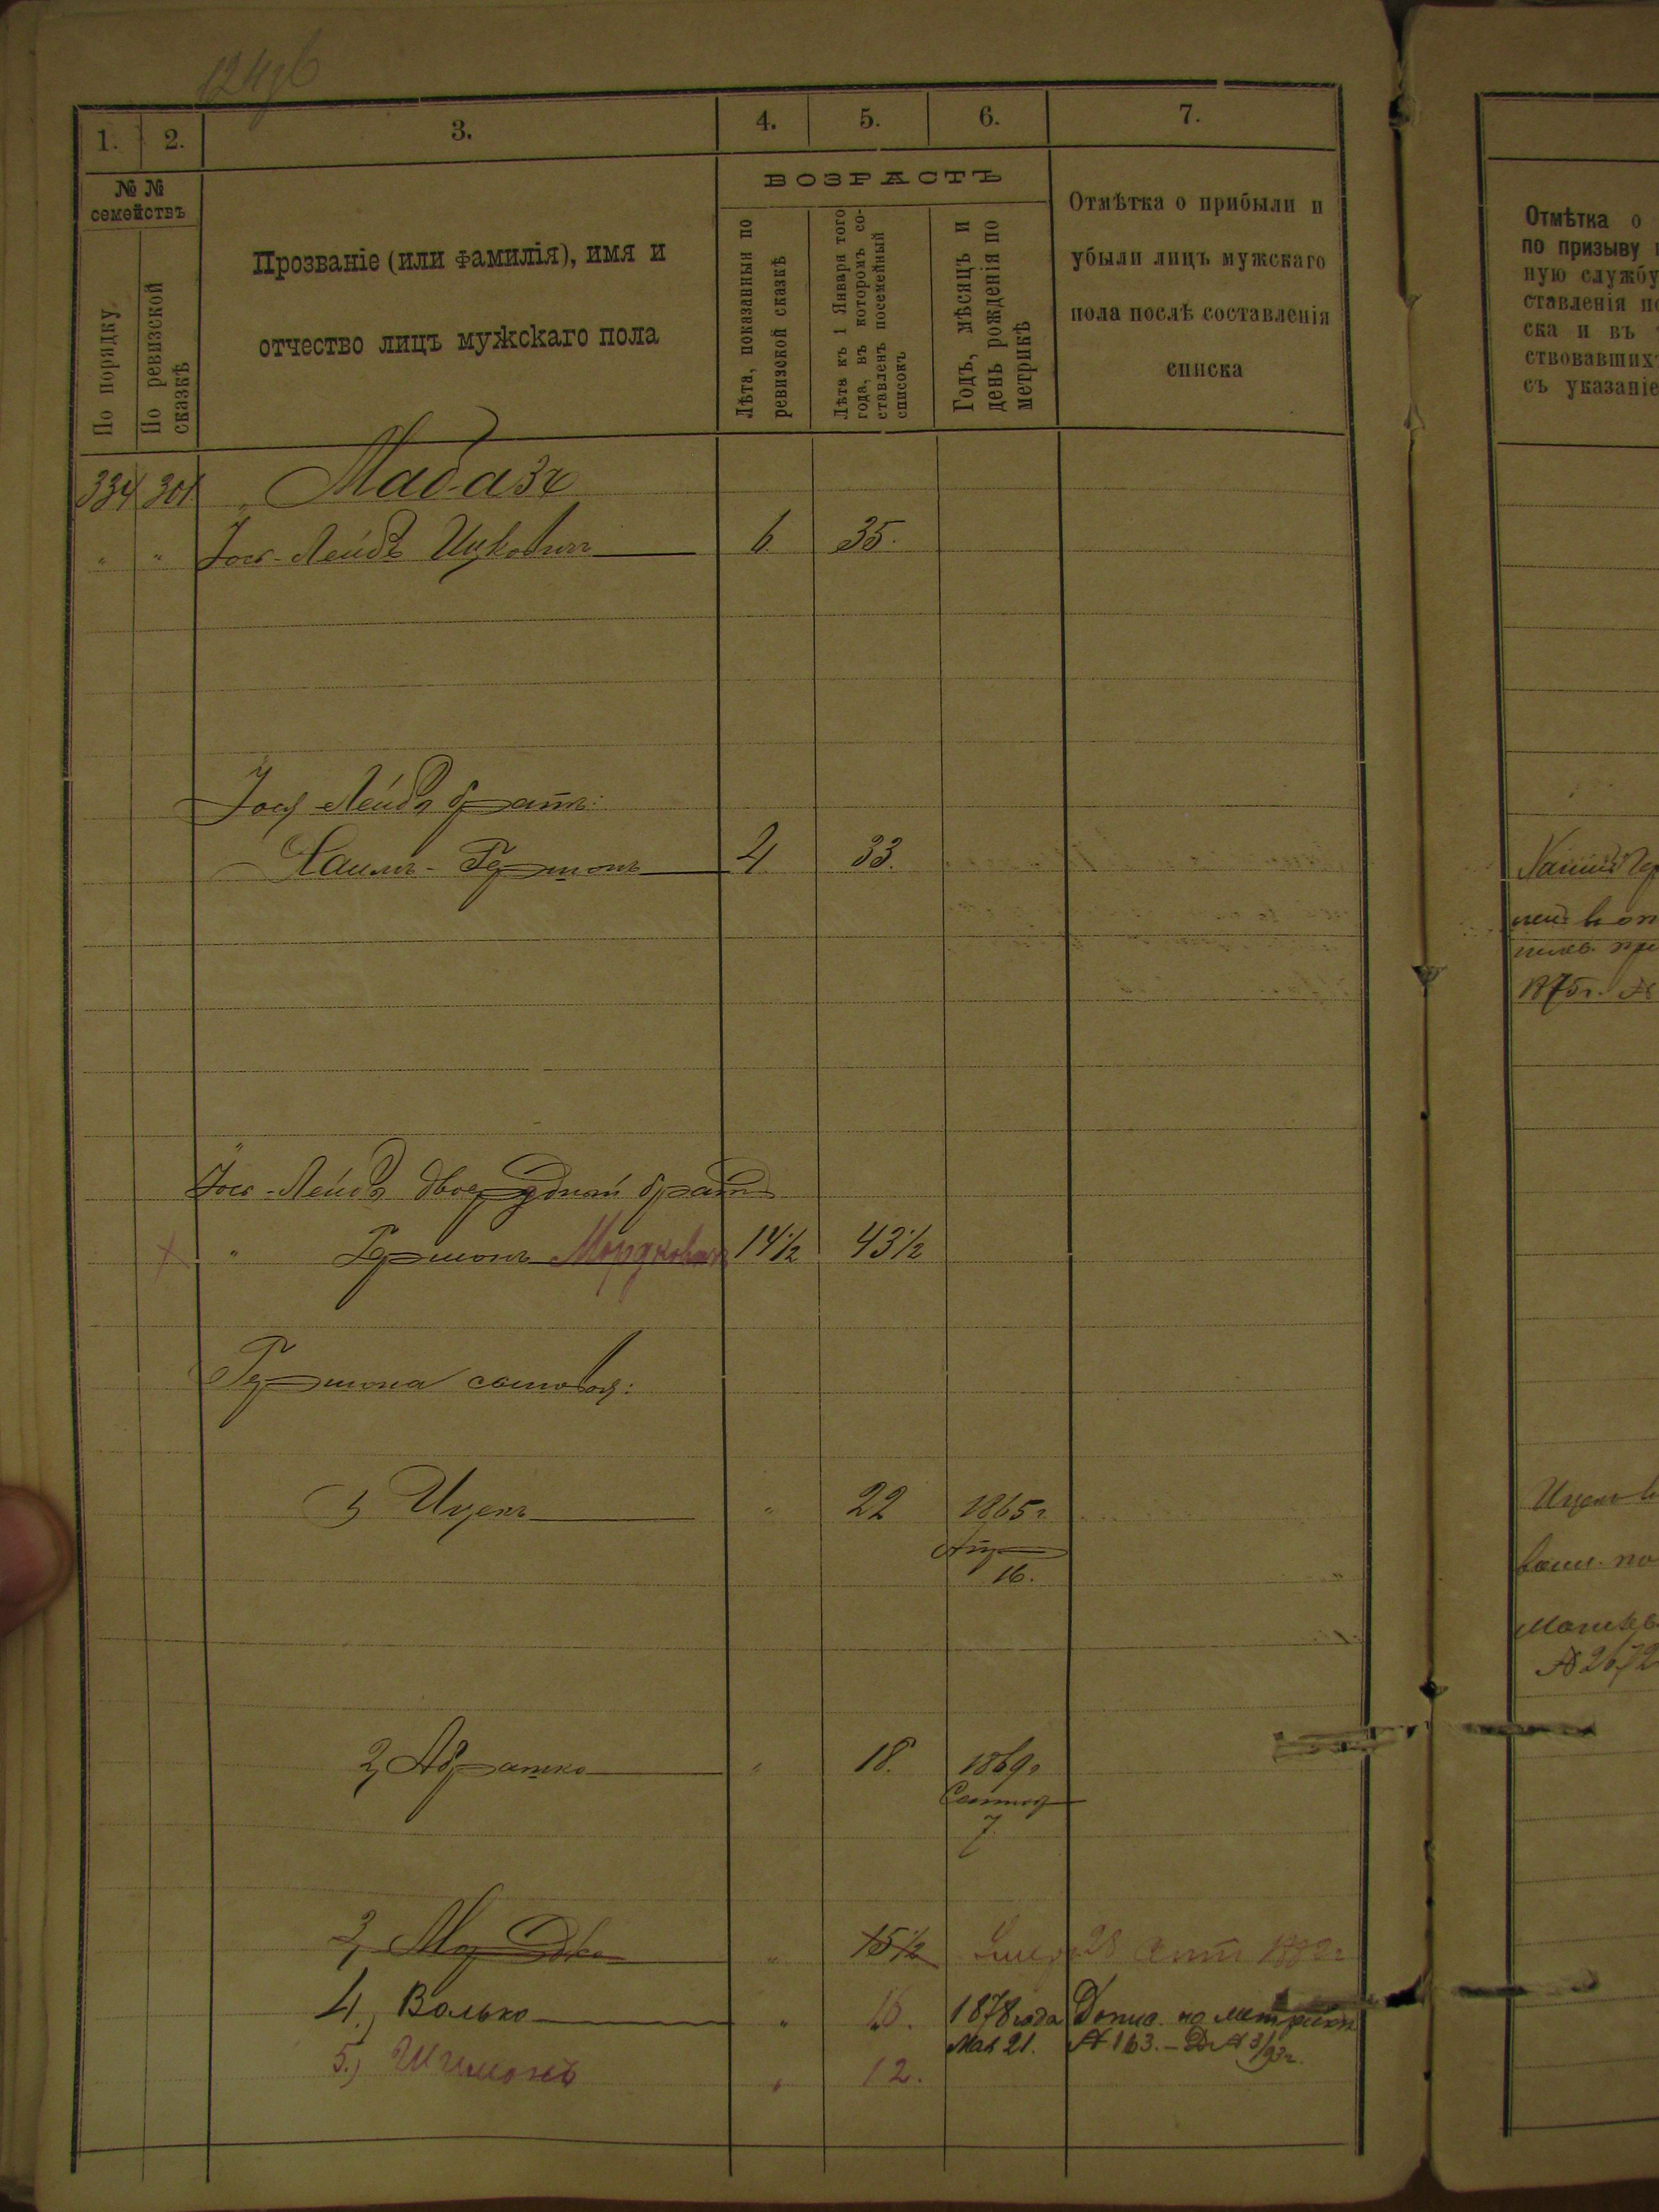 1. 2. 3. 4. 5. 6. 7.
№ № семействъ
По порядку
По ревизской сказкѣ
Прозваніе (или фамилія), имя и
отчество лицъ мужскаго пола
ВОЗРАСТЪ
Лѣта, показанныя по ревизской сказкѣ
Лѣта къ 1 Января того года, въ которомъ составленъ посемейный списокъ
Годъ, мѣсяцъ и день рожденія по метрикѣ
Отмѣтка о прибыли и
убыли лицъ мужскаго
пола послѣ составленія
списка
334 301
" " Іось-Лейба Ицковичъ 6 35.
Іося-Лейбы братъ:
Хаимъ-Гершонъ 4 33.
Іось-Лейбы двоюродный братъ
" Гершонъ Мордковичъ 14½ 43½
Гершона сыновья:
1, Ицекъ " 22 1865г
Апр
16.
2, Абрашко " 18. 1869г
Сентяб
7.
3, Мордко " 15½ Умеръ 28 1882г
4., Волько " 16. 1878 года Допис. по метрикѣ
Мая 21. № 163. – Д № 3/93г.
5.) Шимонъ " 12.
Отмѣтка о
по призыву
ную службу
ставленія по
ска и въ
ствовавшихъ
съ указаніе
Хаимъ Гер
1875г. №
Ицекъ
№ 2672